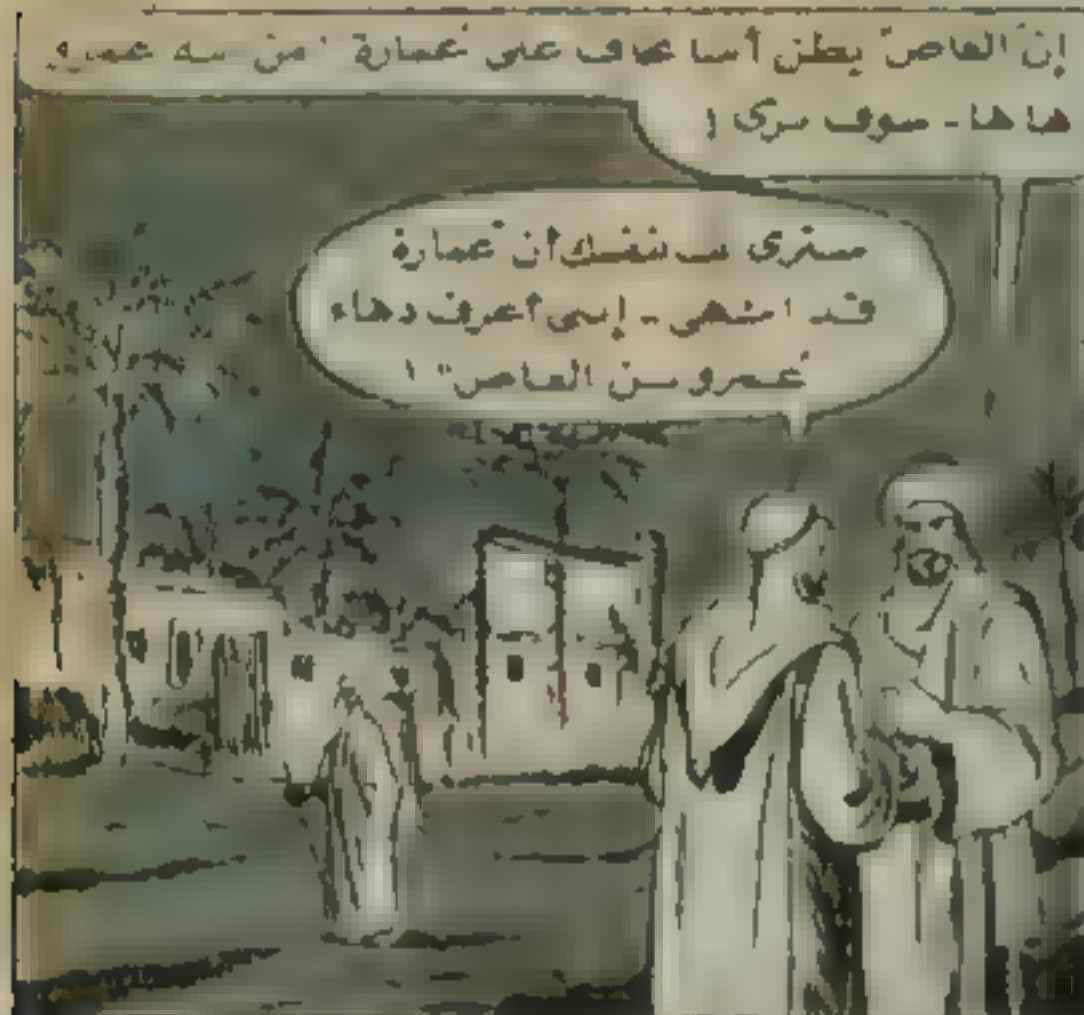 إنّ "العاص" يظن أننا نخاف على "عمارة" من ابنه عمرو
ها ها - سوف نرى !
سترى بنفسك أن عمارة
قد انتهى - إنني أعرف دهاء
"عمرو بن العاص" !